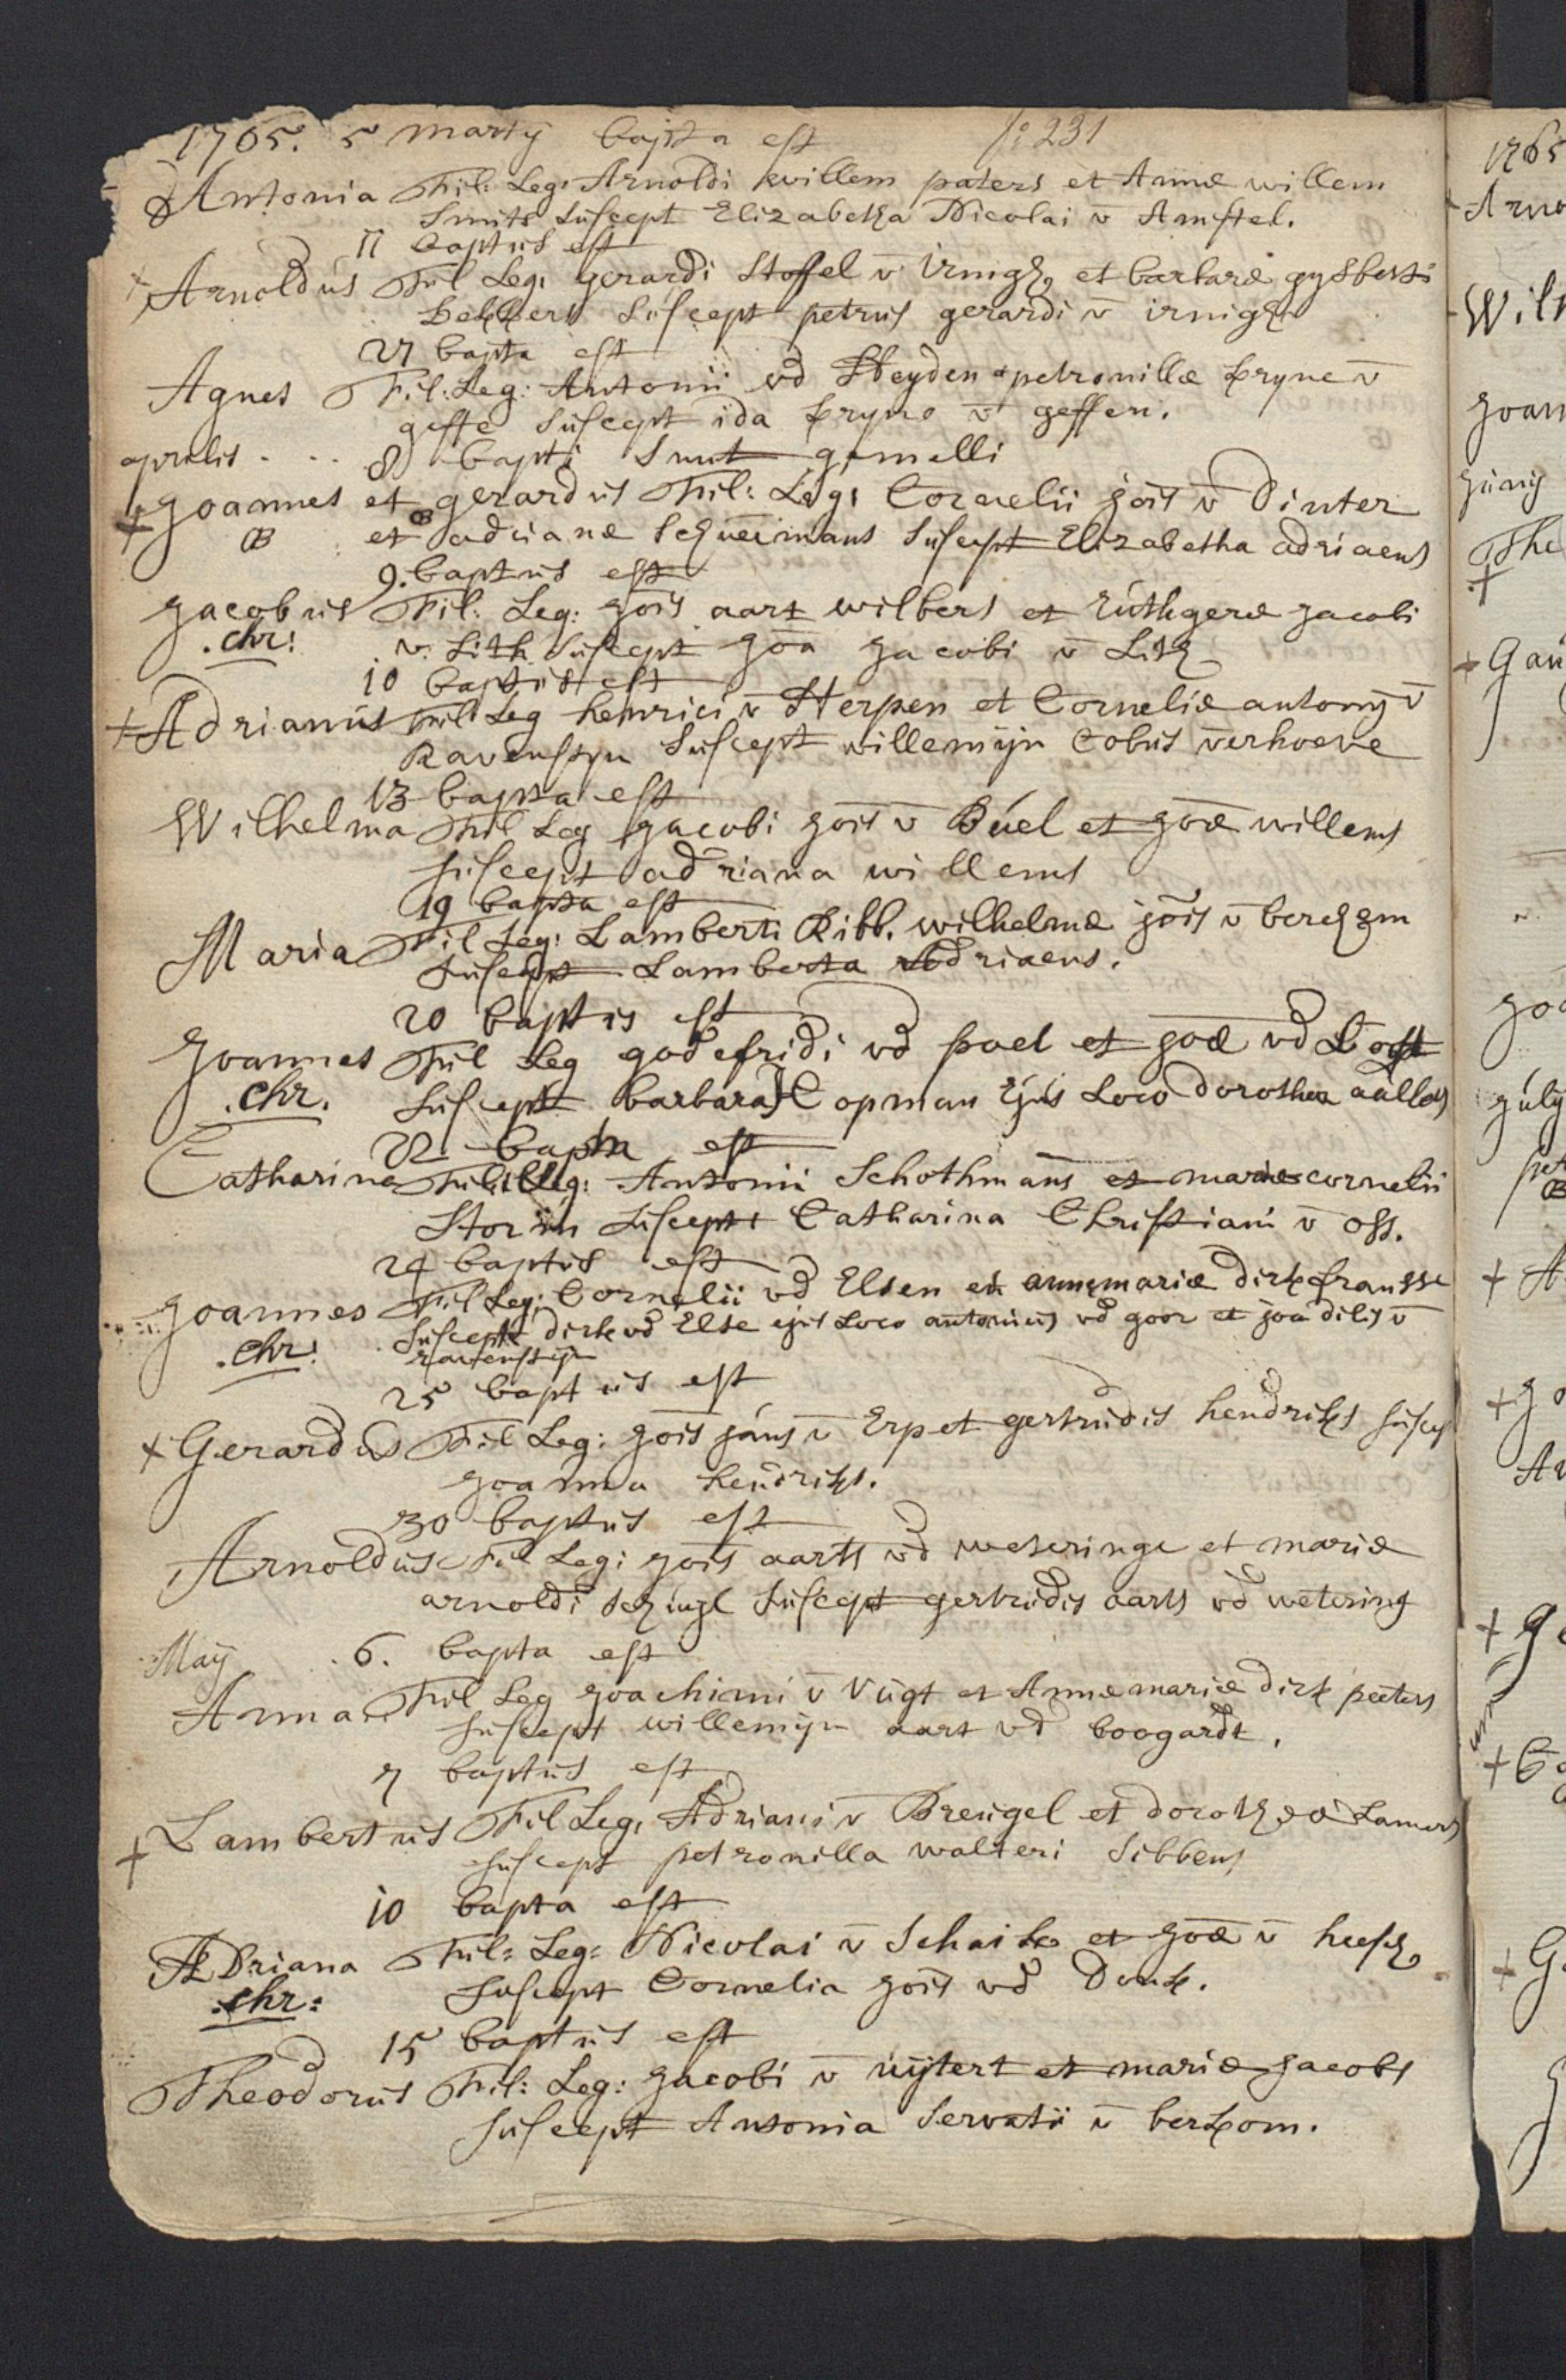 1765. 5 martÿ bapta est fo 231
Antonia Fil: Leg: Arnoldi willem peters et Annæ willem
Smits Suscept Elizabetha Nicolai v̄ Amstel.
11 baptus est
+ Arnoldus Fil Leg: gerardi Stoffel v̄ irnigh et barbaræ gysberti
bekkers Suscept petrus gerardi v̄ irnigh
27 bapta est
Agnes Fil: Leg: Antonii vd Heyden & petronillæ kryne v̄
geffe Suscept ida kryne v̄ geffen.
aprilis . . . 8 bapti Sunt gemelli
+ Joannes et gerardus Fil: Leg: Cornelii jois v̄ Dinter
B et adrianæ Suscept Elizabetha adriaens
9. baptus est
Jacobus Fil: Leg: jois aart wilbers et Rúthgeræ Jacobi
.chr: v. Lith Suscept Joa Jacobi v̄ Lith
10 baptus est
+ Adrianus Fil Leg henrici v̄ Herpen et Corneliæ antonÿ v̄
Ravenstyn Suscept willemijn Cobus verhoeve
13 bapta est
Wilhelma Fil Leg Jacobi Jois v̄ Búel et Joæ willems
Suscept adriana willems
19 bapta est
Maria Fil Leg: Lamberti Ribb. wilhelmæ jois v̄ berchgm
Suscept Lamberta Adriaens.
20 baptus est
Joannes Fil Leg godefridi vd poel et Joæ vd
.chr. Suscept barbara Copman Ejus Loco dorothea
22 bapta est
Catharina Fil illeg: Antonii Schothmans et mariæ cornelii
Storm Suscept Catharina Christiani v̄ oss.
24 baptus est
Joannes Fil Leg: Cornelii vd Elsen et annæmariæ dirk fransse
.chr: Suscept dirk vd Else ejus Loco antonius vd goor et joa dilis v̄
ravenstijn
25 baptus est
+ Gerardus Fil Leg: Jois jans v̄ Erp et gertrudis hendriks Suscep
Joanna hendriks.
30 baptus est
Arnoldus Fil Leg: Jois aarts vd weteringe et mariæ
arnoldi Suscept gertrudis aarts vd wetering
Maÿ 6. bapta est
Anna Fil Leg Joachimi v̄ Vúgt et Annæmariæ dirk peeters
Suscept willemijn aart vd boogardt.
7 baptus est
+ Lambertus Fil Leg: Adriani v̄ Breúgel et dorotheæ Lamers
Suscept petronilla walteri Sibbens
10 bapta est
ADriana Fil: Leg: Nicolai v̄ Schaik et Joæ v̄ heesh
.chr: Suscept Cornelia Jois vd Donk.
15 baptus est
Theodorus Fil: Leg: Jacobi v̄ uÿtert et mariæ Jacobs
Suscept Antonia Servatii v̄ berkom.
1765
Arno
Wilh
Joan
Junÿ
The
+
Jul​ÿ